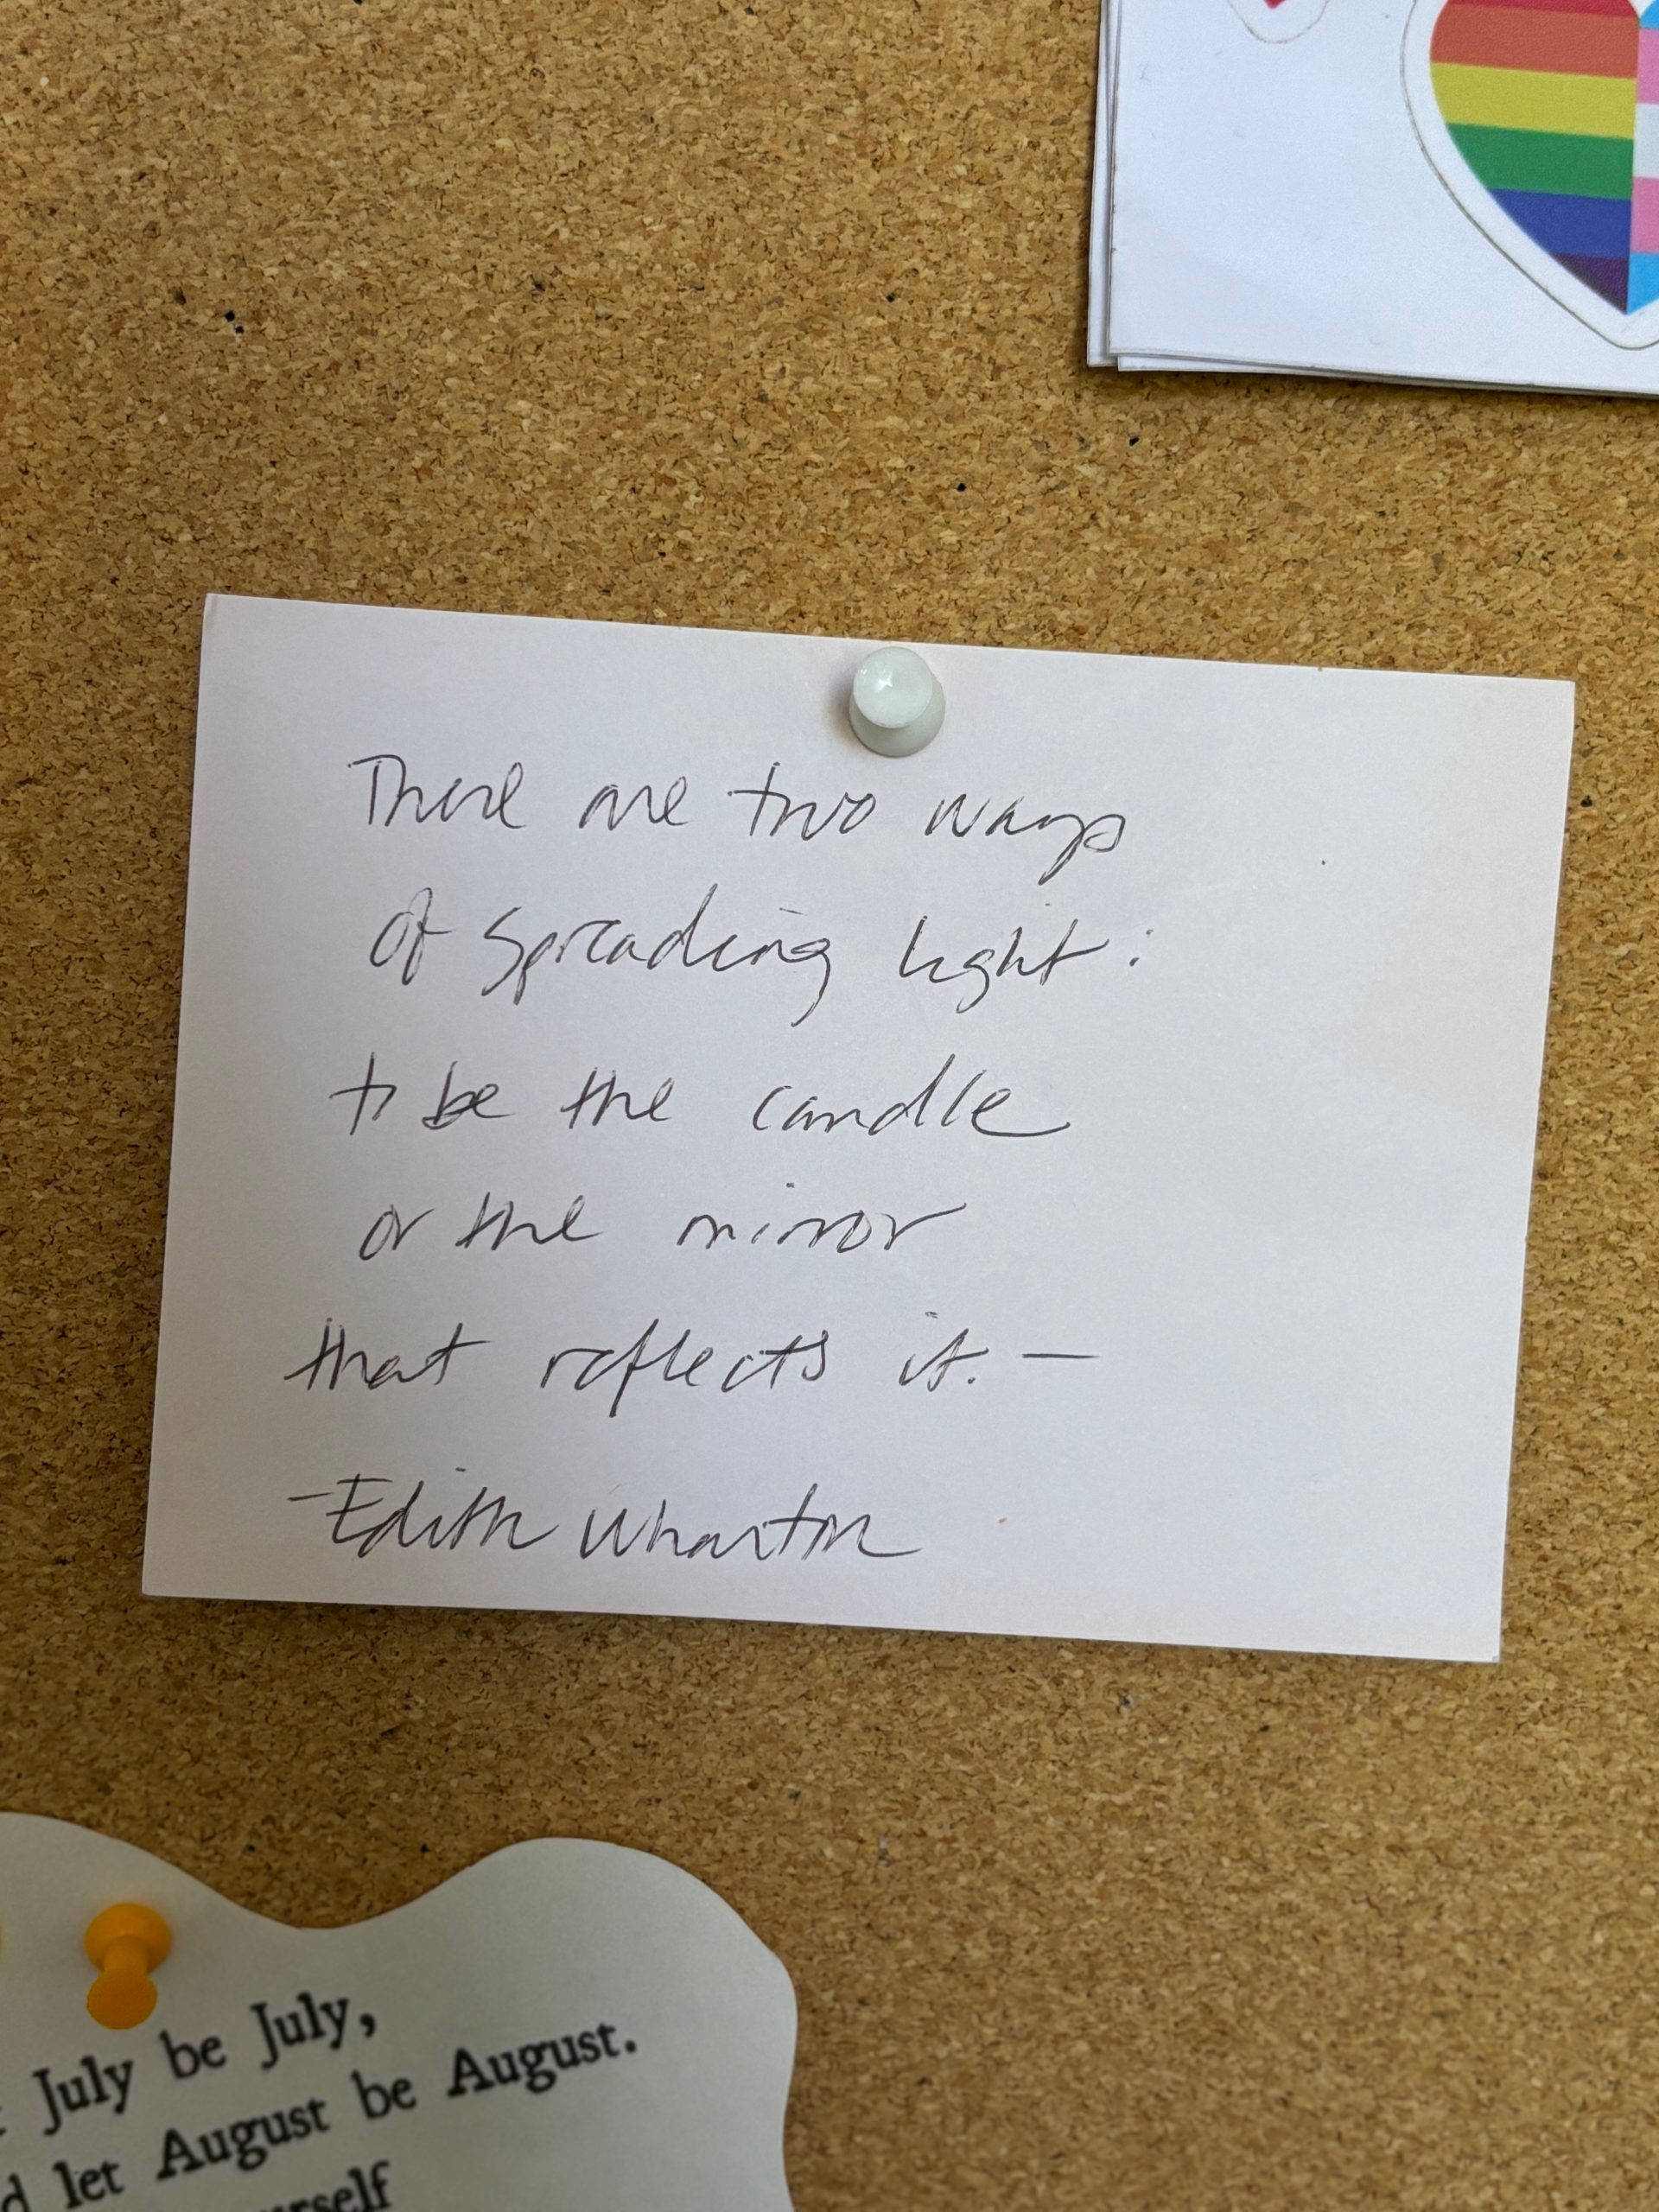 There are two ways
of spreading light:
to be the candle
or the mirror
that reflects it. —
-Edith Wharton
July be July,
let August be August.